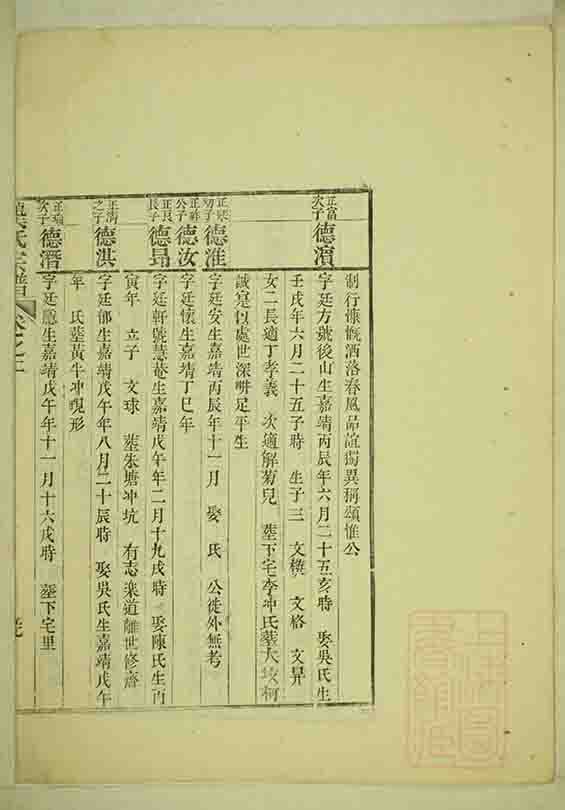 制行慷慨洒落春風品誼獨異稱頌惟公
正富次子
德濱
字廷方號後山生嘉靖丙辰年六月二十五亥時 娶吳氏生
壬戌年六月二十五子時 生子三 文 文格 文昇
女二長適丁孝義 次適解菊兒 塟下宅李冲氏塟大
誠寔似處世深 足平生
正 幼子
德淮
字廷安生嘉靖丙辰年十一月 娶 氏 公徙外無考
正 公子
德汝
字廷懷生嘉靖丁巳年
正艮長子
德昻
字廷軒號慧菴生嘉靖戊午年二月十九戌時 娶陳氏生丙
寅年 立子 文球 塟朱塘冲坑 有志樂道離世修齋
正清之子
德淇
字廷郁生嘉靖戊午年八月二十辰時 娶吳氏生嘉靖戊午
年 氏塟黃牛冲晛形
正 次子
德潛
字廷應生嘉靖戊午年十一月十六戌時 塟下宅里
氏宗譜 卷之二